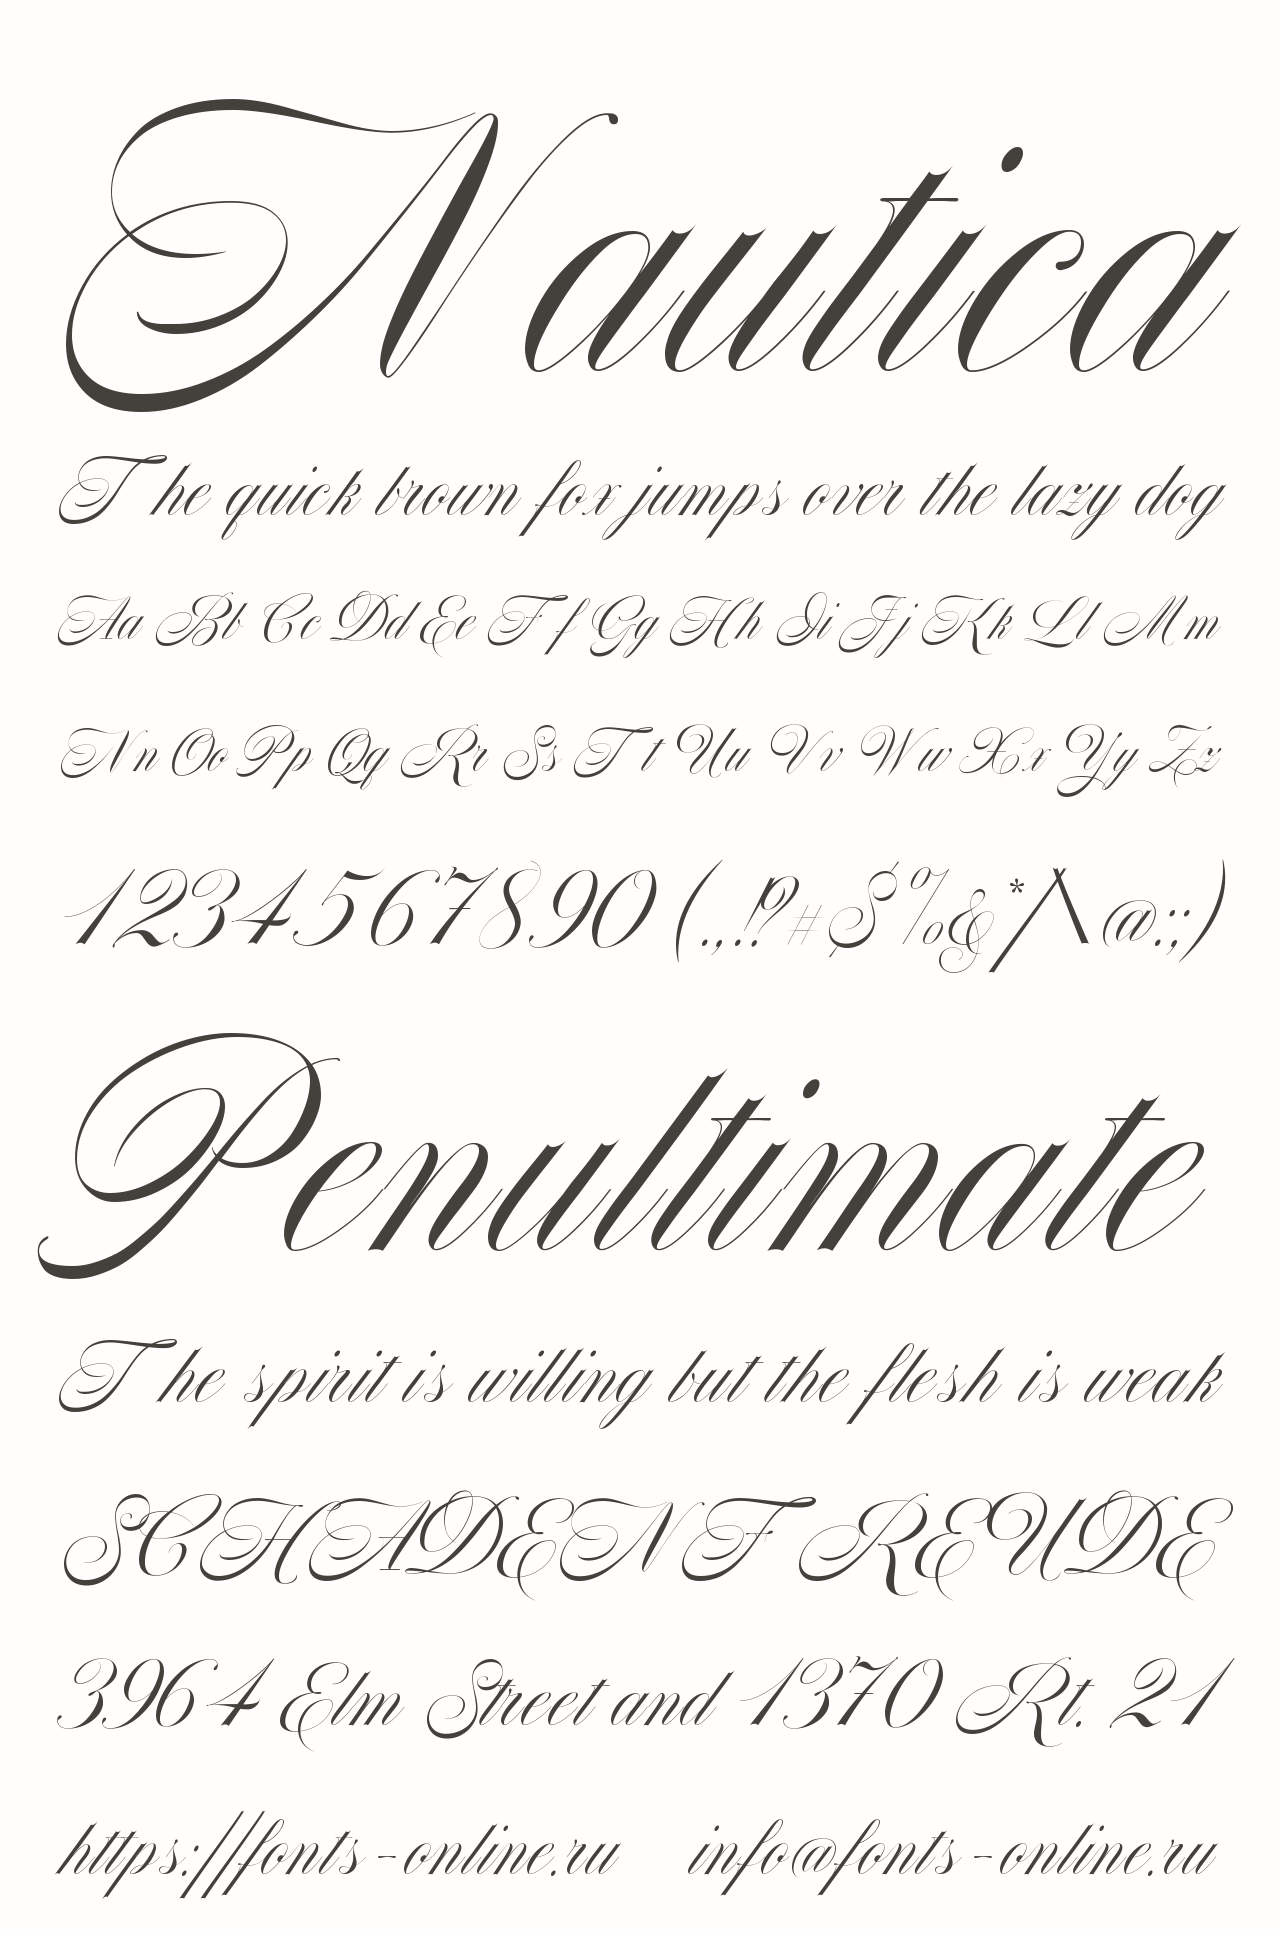 Nautica
The quick brown fox jumps over the lazy dog
Aa Bb Cc Dd Ee Ff Gg Hh Ii Jj Kk Ll Mm
Nn Oo Pp Qq Rr Ss Tt Uu Vv Ww Xx Yy Zz
1234567890(.,.!?#$%&*/\@:;)
Penultimate
The spirit is willing but the flesh is weak
SCHADENFREUDE
3964 Elm Street and 1370 Rt. 21
https://fonts-online.ru info@fonts-online.ru